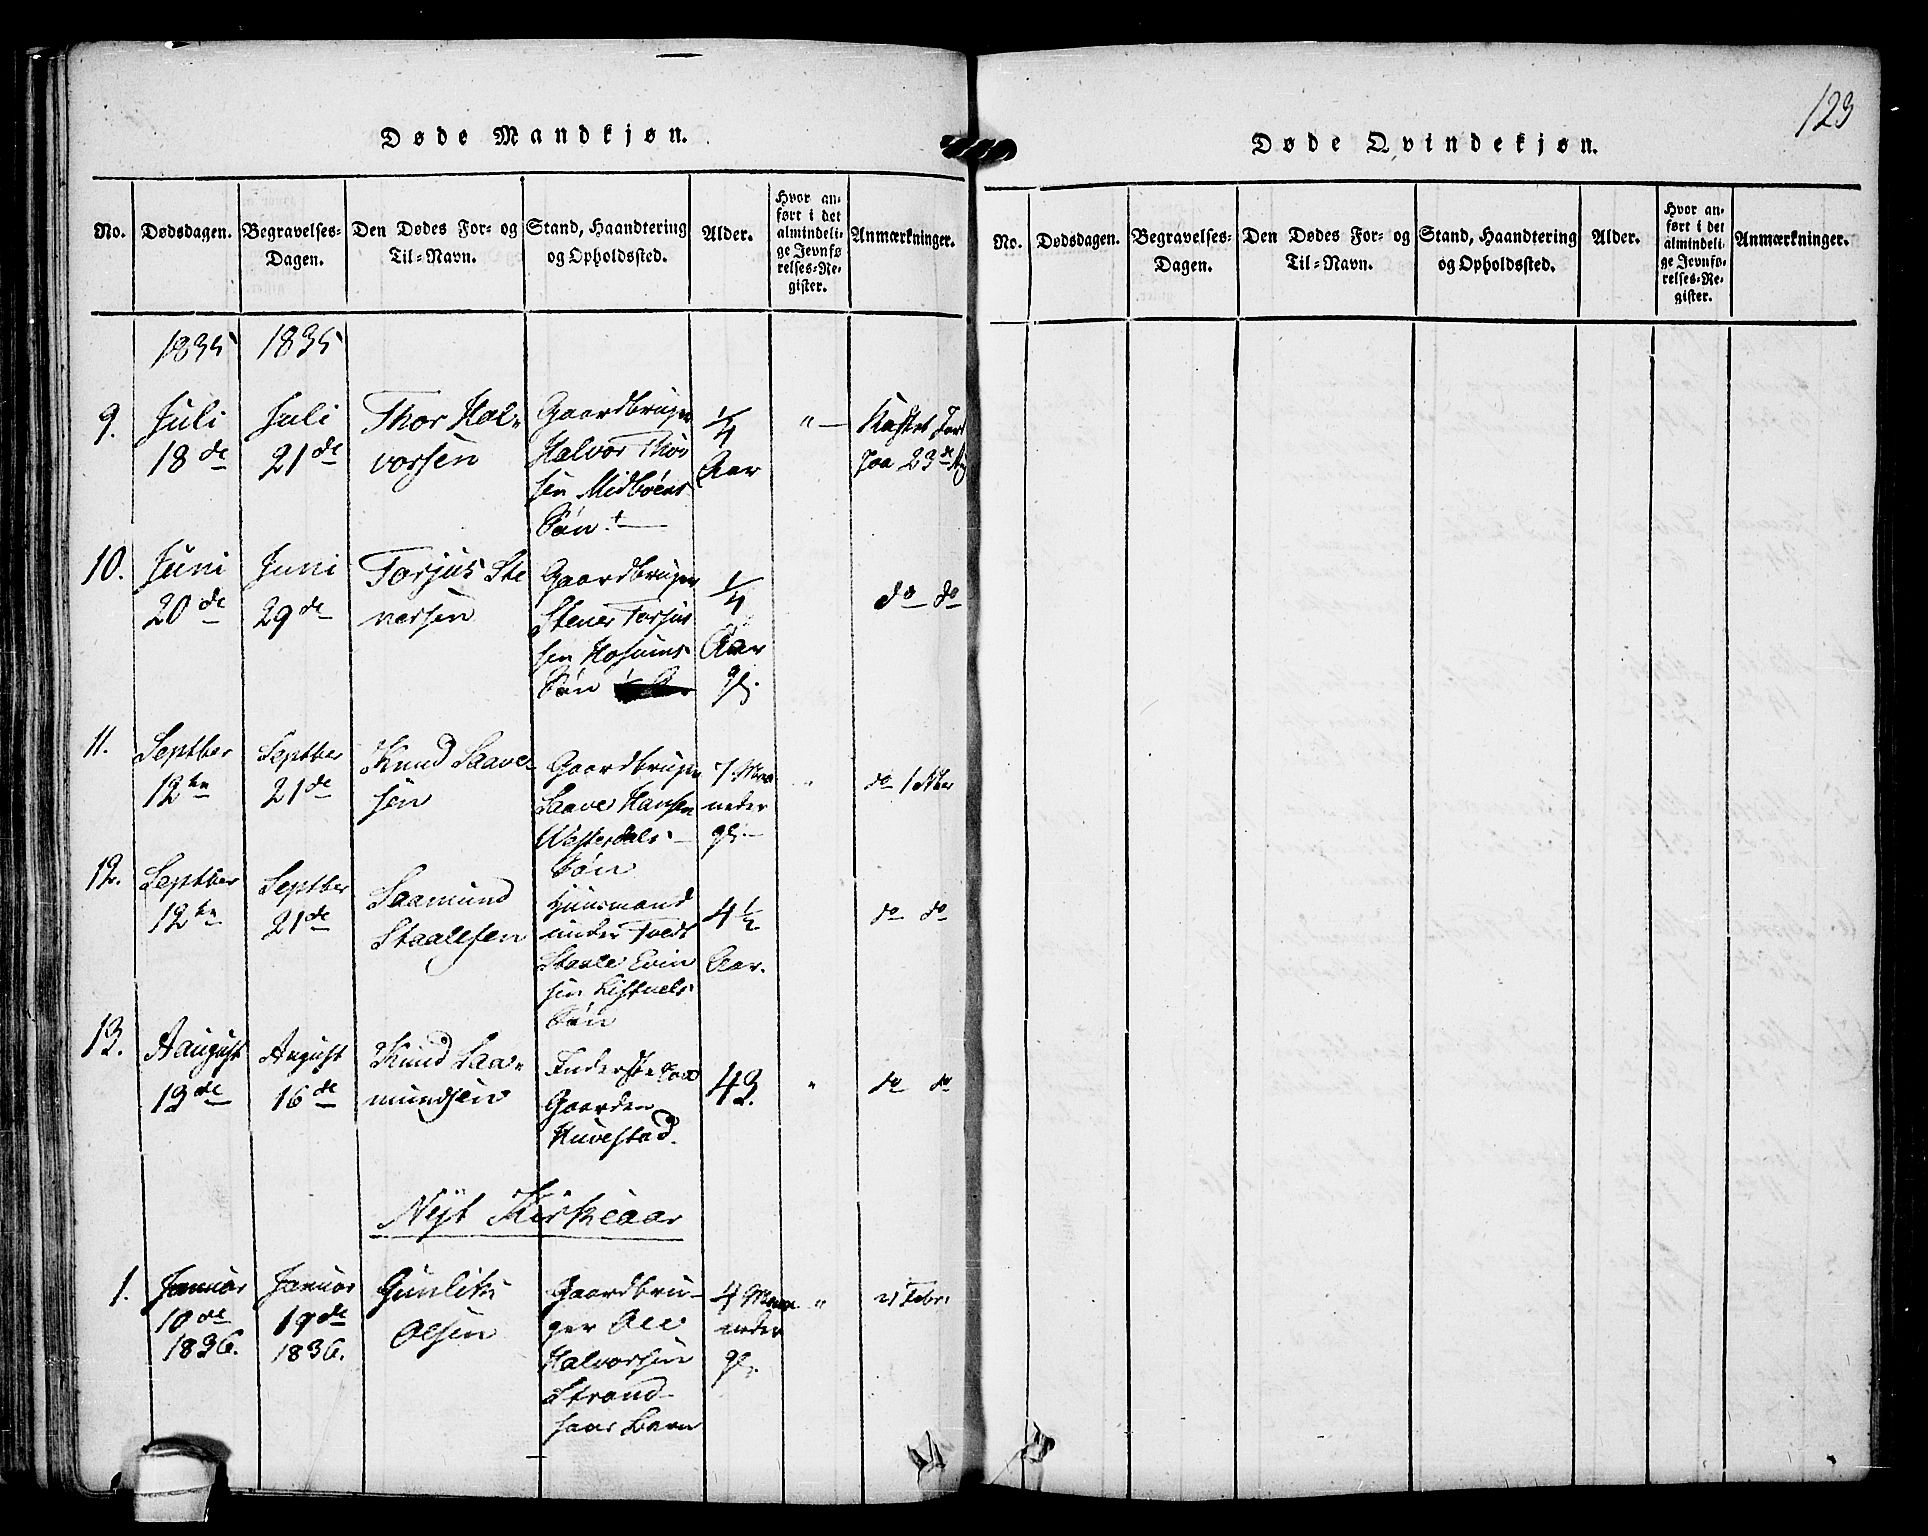 Døde Mandkjøn.
No.
Dødsdagen.
Begravelses-
Dagen.
Den Dødes For- og
Til-Navn.
Stand, Haandtering
og Opholdssted.
Alder.
Hvor an-
ført i det
almindeli-
ge Jevnfø-
relses-Re-
gister.
Anmærkninger.
1835
1835
9.
Juli
18 de
Juli
21 de
Thor Hal-
vorsen
Gaardbruger
Halvor Thor
sen Midbøens
Søn
1/4
Aar
"
Kastet Jord
paa 23 de
10.
Juni
20 de
Juni
29 de
Torjus Ste
nersen
Gaardbruger
Stener Torjus
sen
Søn
1/4
Aar
gl.
do do
11.
Septber
12 te
Septber
21 de
Knud Saave
sen
Gaardbruger
Saave Hansen
Westerdals
Søn
7 Maa
neder
gl.
"
do 1
12.
Septber
12 te
Septber
21 de
Saamund
Staalesen
Huusmand
under Tveds
Staale Evin
sen
Søn
4 1/2
Aar.
do do
13.
Aaugust
13 de
August
16 de
Knud Saa-
mundsen
Inderste paa
Gaarden
Huvestad.
43.
"
do do
Nyt Kirkeaar
1.
Januar
10 de
1836.
Januar
19 de
1836.
Gunlik
Olsen
Gaardbru-
ger Ole
Halvorsen
Strand-
Barn
4 Maa
neder
gl.
"
21 Febr
123
Døde Qvindekjøn.
No.
Dødsdagen.
Begravelses-
Dagen.
Den Dødes For- og
Til-Navn.
Stand, Haandtering
og Opholdssted.
Alder.
Hvor an-
ført i det
almindeli-
ge Jevnfø-
relses-Re-
gister.
Anmærkninger.